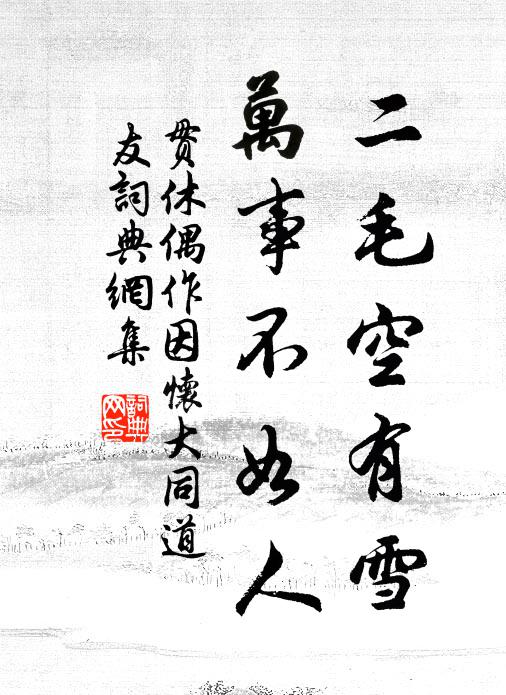 二毛空有雪
萬事不如人
貫休偶作因懷大同道
友詞典網集
詞典
网印